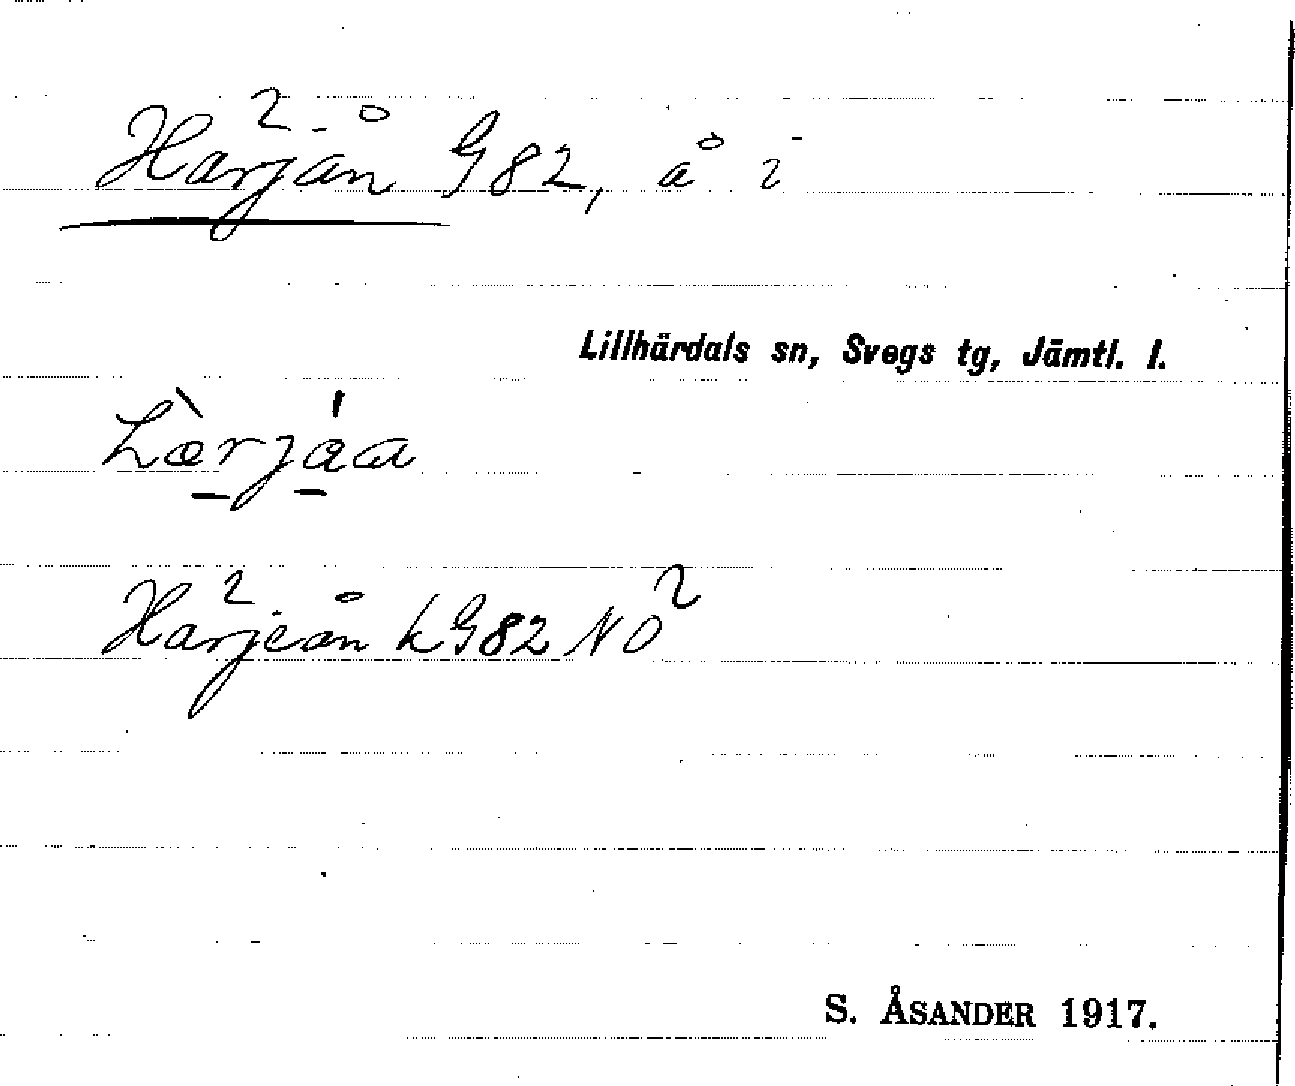 Härjån G82, å i
Lillhärdals sn, Svegs tg, Jämtl. l.
Härjeån kG82 NO
S. ÅSANDER 1917.